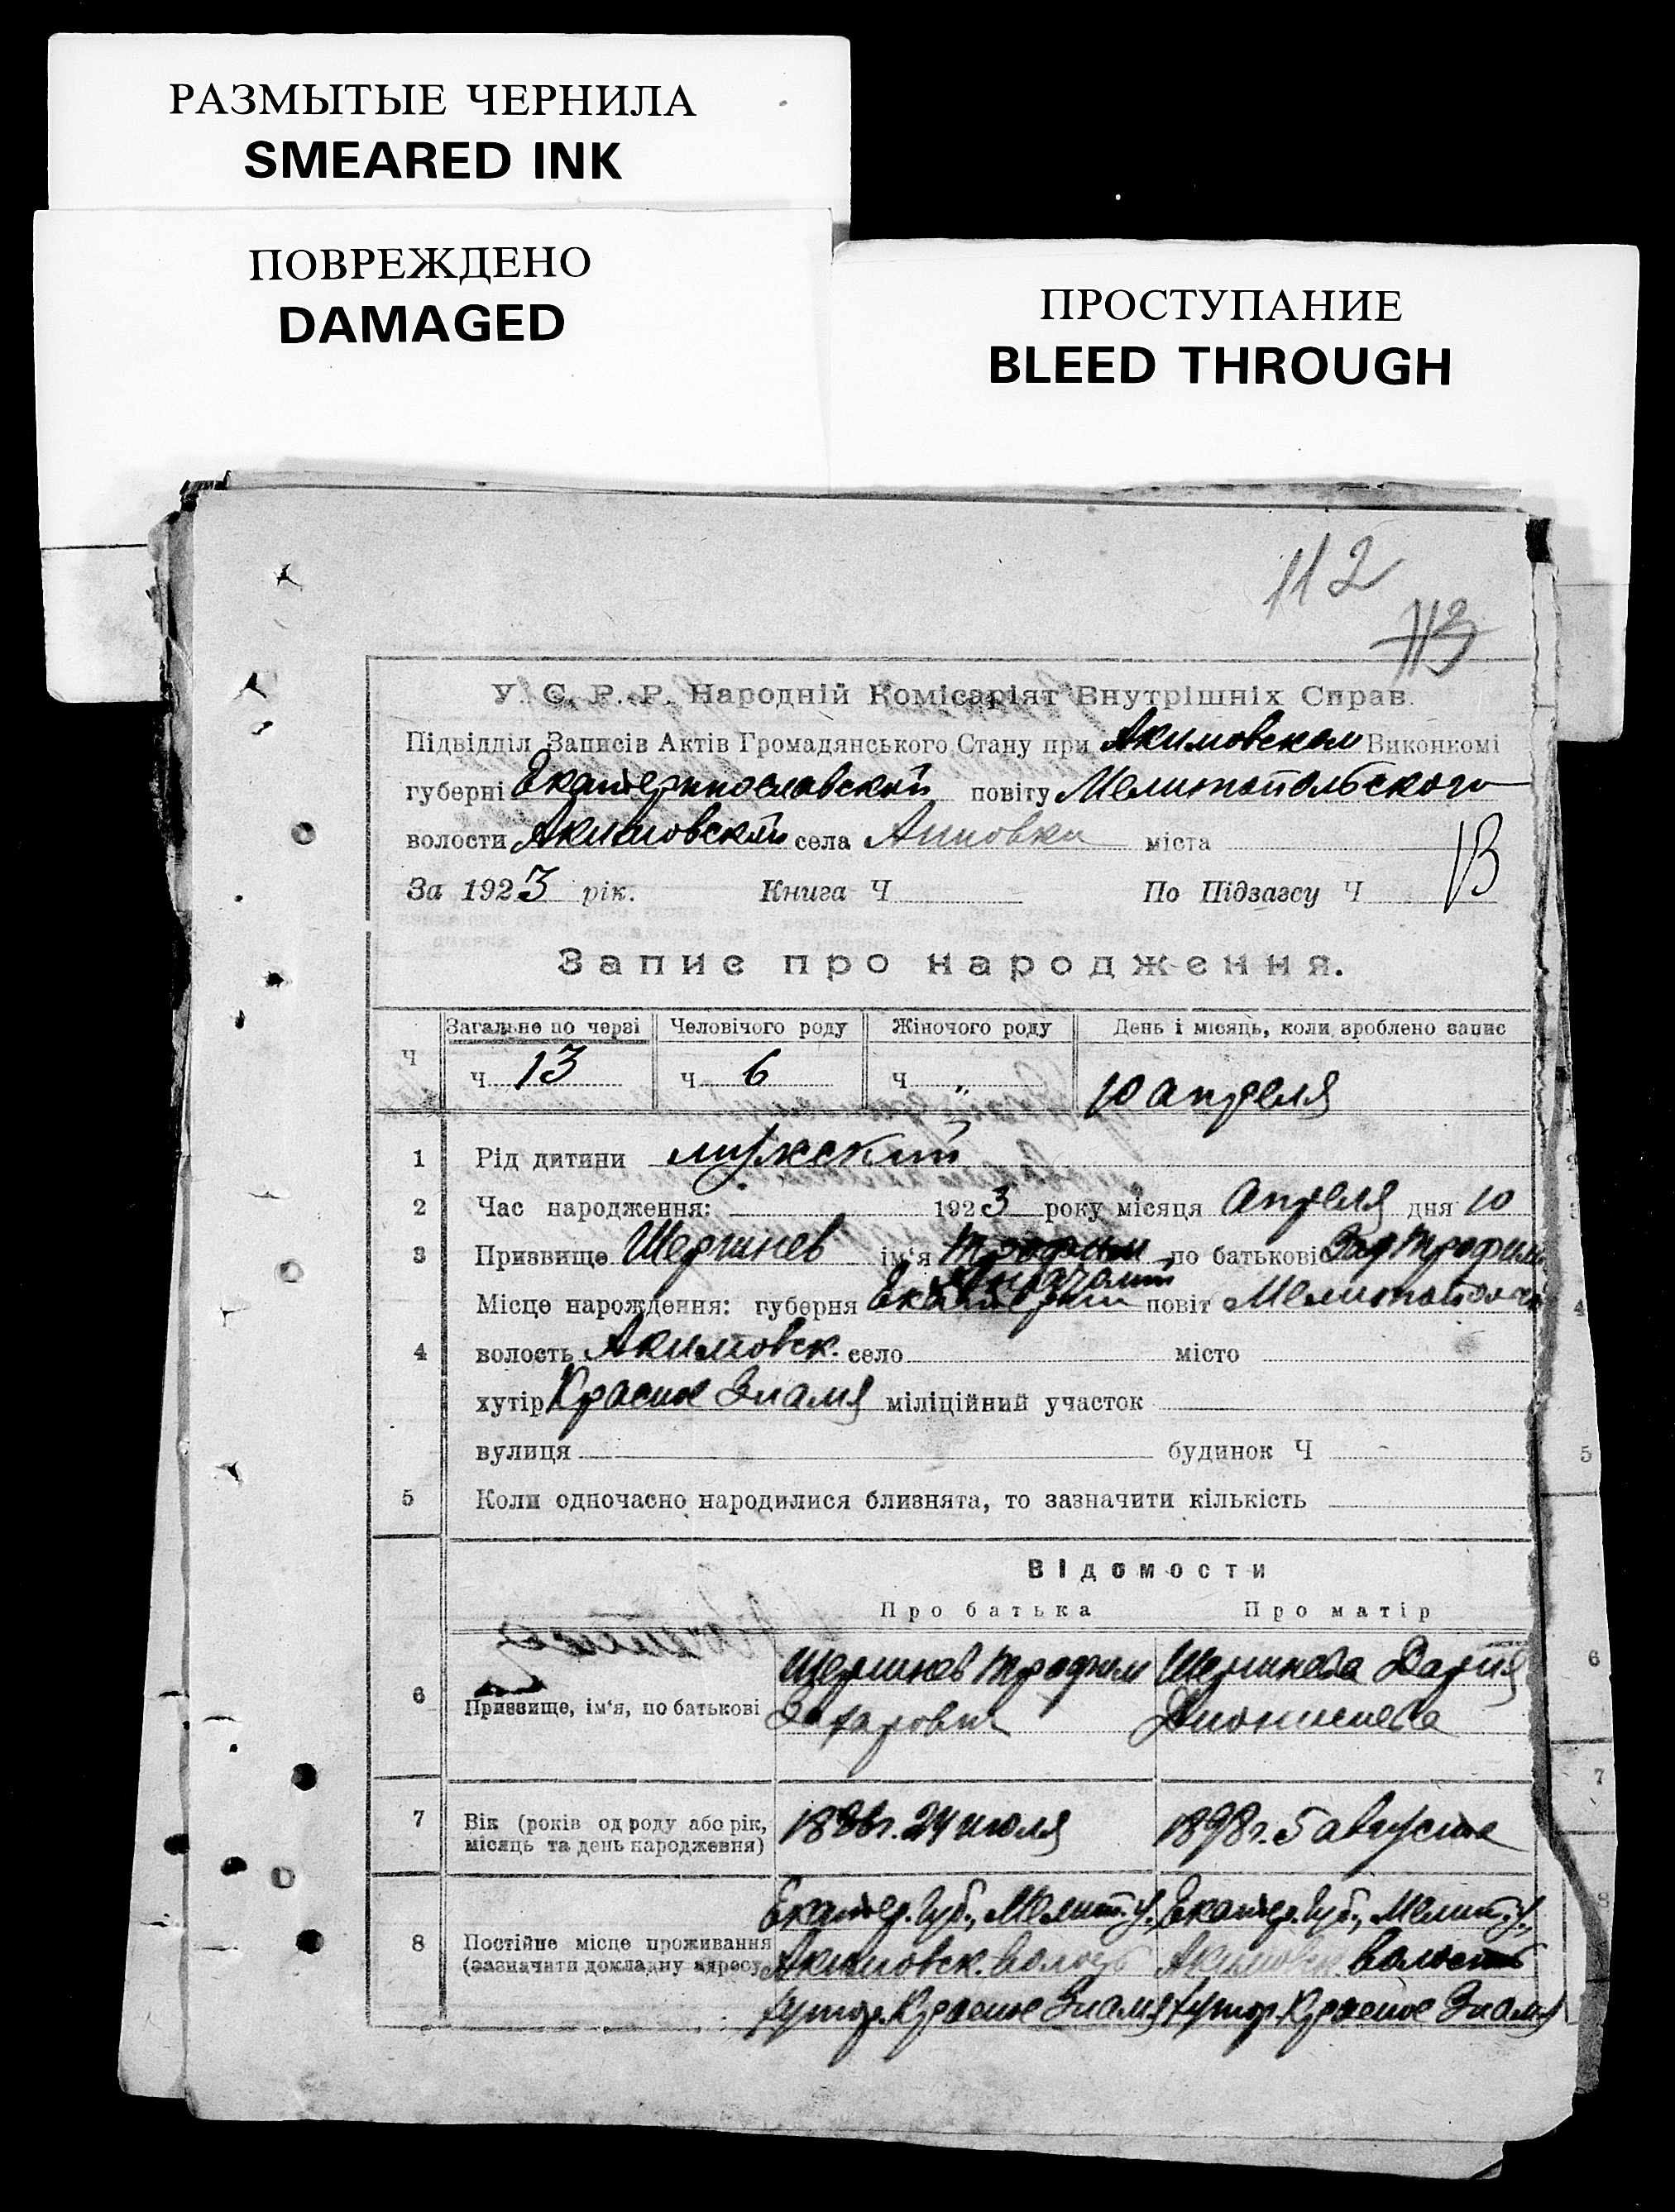 РАЗМЫТЫЕ ЧЕРНИЛА
SMEARED INK
ПОВРЕЖДЕНО
DAMAGED
ПРОСТУПАНИЕ
BLEED THROUGH
112
113
У. С. Р. Р. Народній Комісаріят Внутрішніх Справ.
Підвідділ Записів Актів Громадянського Стану при Акимовском Виконкомі
губерні Екатеринославской повіту Мелитопольского
волости Акимовской села Анновки міста
За 1923 рік. Книга Ч По Підзагсу Ч 13
Запис про народження.
Загальне по черзі Человічого роду Жіночого роду День і місяць, коли зроблено запис
Ч Ч 13 Ч 6 Ч „ 10 апреля
1 Рід дитини мужской
2 Час народження: 1923 року місяця Апреля дня 10
3 Призвище ім‘я Трофим по батькові Трофим
Місце нарождення: губерня Екатерин повіт Мелитопольск
4 волость Акимовск. село місто
хутір Красное Знамя міліційний участок
вулиця будинок Ч
5 Коли одночасно народилися близнята, то зазначити кількість
Відомости
Про батька Про матір
Трофим Дария
6 Призвище, ім‘я, по батькові Захарович Дионисиева
7 Вік (років од роду або рік, місяць та день народження) 24 июля 1898 г. 5 августа
Екатер. Губ., Мелит. у. Екатер. Губ., Мелит. у.,
8 Постійне місце проживання Акимовск. волость Акимовск. волость
(зазначити докладну адресу
хутор. Красное Знамя хутор. Красное Знамя
5
6
7
8